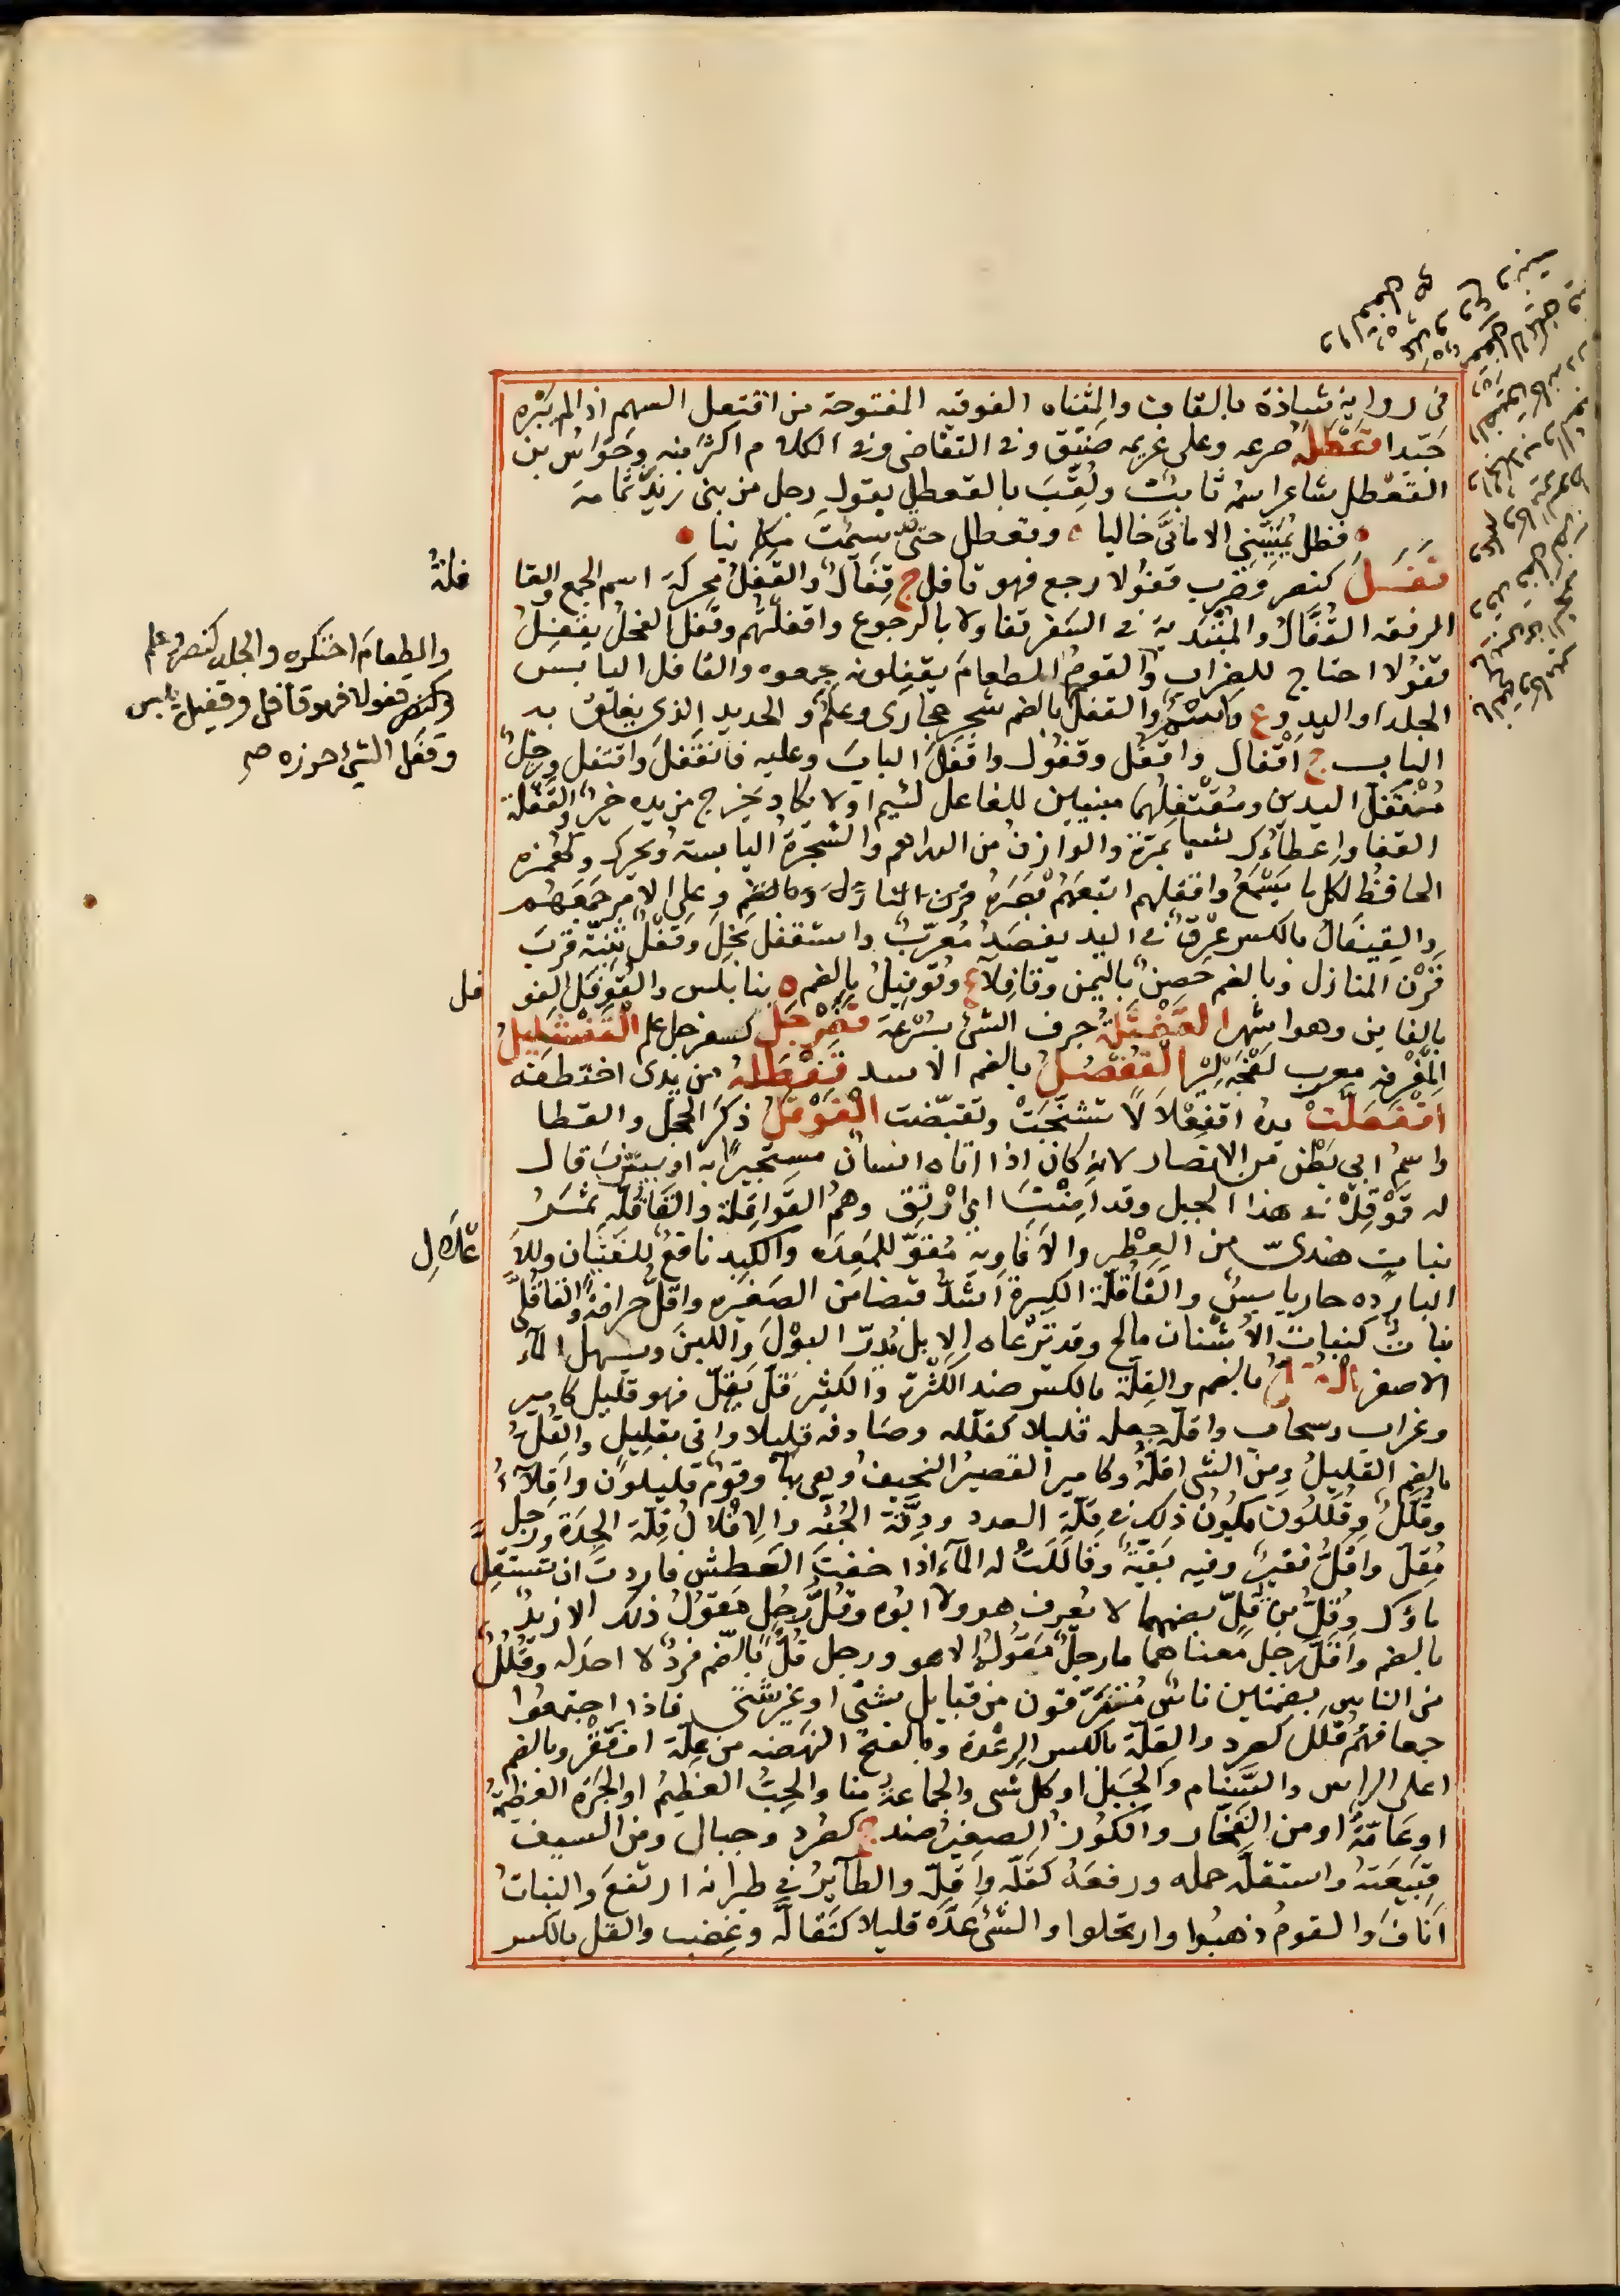 في رواية شاذة بالقاف والمثناه الفوقيه المفتوحة من اقتعل السهم اذا لم يبره
جيدا قعطله صرعه وعلى غريمه ضيق وفي التقاضي وفي الكلام اكثر منه وحواس بن
القعطل شاعر اسمه ثابت ولقب بالقعطل بقول رجل من بني زيد ثمامة
فظل يمنيني الاماني خاليا وقعطل حتى سئمت مكانيا
قفل كنصر وضرب قفولا رجع فهو قافل ج قفال والقفل محركة اسم الجمع والقا
فلة
الرفقه القفال والمبتدية في السفر تفاولا بالرجوع واقفلتهم وقفل الفحل يقفل
قفولا احتاج للضراب والقوم الطعام يقفلون جمعوه والقافل اليابس
الجلد او اليد و ع والقفل بالضم شجر حجازى وعلم والحديد الذى يغلق به
الباب ج اقفال واقفل وقفول واقفل الباب وعليه فانقفل واقتفل ورجل
مقفل اليدين ومقتفلهما مبنيين للفاعل لئيم او لا يكاد يخرج من يده خير والقفلة
القفا واعطاؤك شيا بمرة والوازن من الدراهم والشجرة اليابسة ويحرك وكهمزه
الحافظ لكل ما يسمع واقفلهم اتبعهم بصره وعلى الامر جمعهم
والقيفال بالكسر عرق في اليد يفصد معرب واستقفل بخل وقفل ثنية قرب
قرن المنازل وبالضم حصن باليمن وقافلآء ع وقوفيل بالضم ه بنابلس والقوفل الفو
فل
بالفاين وهو اشهر القفثلة جرف الشئ بسرعة قفرجل كسفرجل علم القفشليل
المغرفه معرب كفجه ليز القفصل بالضم الاسد قفطله من يدى اختطفه
اقفعلت يده اقفعلالا تشنجت وتقبضت القوقل ذكر الحجل والقطا
واسم ابي بطن من الانصار لانه كان اذا اتاه انسان مستجيرا به او بيثرب قال
له قوقل في هذا الجبل وقد امنت اى ارتق وهم القواقلة والقاقلة ثمر
نبات هندى من العطر والافاويه مقو للمعده والكبد نافع للغثيان وللا
علال
البارده حار يابس والقاقلة الكبيرة اشد قبضا من الصغيره واقل حرافة والقاقلى
نبات كنبات الاشنان مالح وقد ترعاه الابل يدر البول واللبن ويسهل المآء
الاصفر القل بالضم والقلة بالكسر ضد الكثرة والكثر قل يقل فهو قليل كامير
وغراب وسحاب واقله جعله قليلا كقلله وصادفه قليلا واتى بقليل والقل
بالضم القليل ومن الشى اقله وكامير القصير النحيف وهى بهآ وقوم قليلون واقلآء
وقلل وقللون يكون ذلك في قلة العدد ودقة الجثه والاقلال قلة الجدة ورجل
مقل واقل فقير وفيه بقية وقاللت له المآء اذا خفت العطش فاردت ان تستقل
ماؤك وقل بن قل بضمهما لا يعرف هو ولا ابوه وقل رجل يقول ذلك الا زيد
بالضم واقل رجل معناهما ما رجل يقوله الا هو ورجل قل بالضم فرد لا احد له وقلل
من الناس بضمتين ناس متفرقون من قبايل شتى او غير شتى فاذا اجتمعوا
جمعا فهم قلل كصرد والقلة بالكسر الرعدة وبالفتح النهضه من علة او فقر وبالضم
اعلى الراس والسنام والجبل او كل شى والجماعة منا والحب العظيم او الجرة العظيمة
او عامة او من الفخار والكوز الصغير ضد ج كصرد وجبال ومن السيف
قبيعته واستقله حمله ورفعه كقله واقله والطاير في طيرانه ارتفع والنبات
اناف والقوم ذهبوا وارتحلوا والشئ عده قليلا كتقاله وغضب والقل بالكسر
والطعام احتكره والجلد كنصر وعلم
وكنصر قفولا فهو قافل وقفيل يبس
وقفل الشئ حزره صح